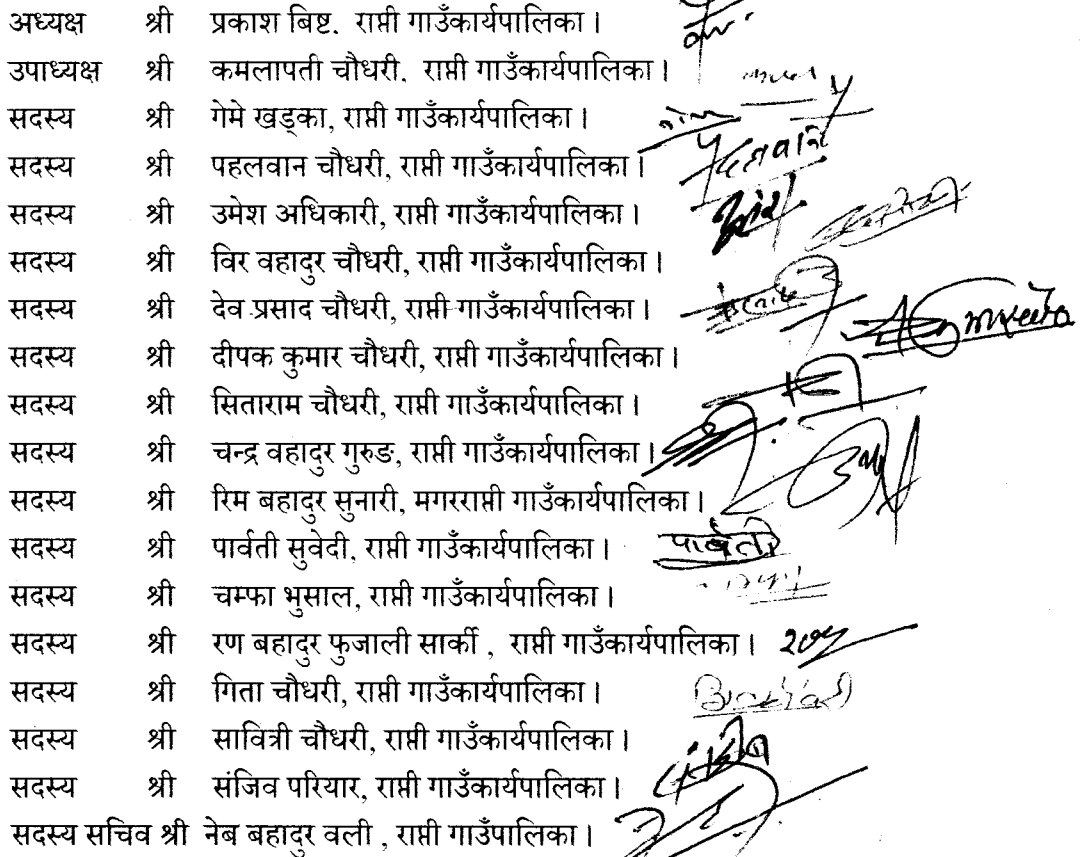 अध्यक्ष श्री प्रकाश बिष्ट. राप्ती गाउँकार्यपालिका ।
उपाध्यक्ष श्री कमलापती चौधरी. राप्ती गाउँकार्यपालिका ।
सदस्य श्री गेमे खड्का, राप्ती गाउँकार्यपालिका ।
सदस्य श्री पहलवान चौधरी, राप्ती गाउँकार्यपालिका ।
सदस्य श्री उमेश अधिकारी, राप्ती गाउँकार्यपालिका ।
सदस्य श्री विर वहादुर चौधरी, राप्ती गाउँकार्यपालिका ।
सदस्य श्री देव प्रसाद चौधरी, राप्ती गाउँकार्यपालिका ।
सदस्य श्री दीपक कुमार चौधरी, राप्ती गाउँकार्यपालिका ।
सदस्य श्री सिताराम चौधरी, राप्ती गाउँकार्यपालिका ।
सदस्य श्री चन्द्र वहादुर गुरुङ, राप्ती गाउँकार्यपालिका ।
सदस्य श्री रिम बहादुर सुनारी, मगरराप्ती गाउँकार्यपालिका ।
सदस्य श्री पार्वती सुवेदी, राप्ती गाउँकार्यपालिका । पार्वती
सदस्य श्री चम्फा भुसाल, राप्ती गाउँकार्यपालिका ।
सदस्य श्री रण बहादुर फुजाली सार्की , राप्ती गाउँकार्यपालिका ।
सदस्य श्री गिता चौधरी, राप्ती गाउँकार्यपालिका ।
सदस्य श्री सावित्री चौधरी, राप्ती गाउँकार्यपालिका ।
सदस्य श्री संजिव परियार, राप्ती गाउँकार्यपालिका ।
सदस्य सचिव श्री नेब बहादुर वली , राप्ती गाउँपालिका ।